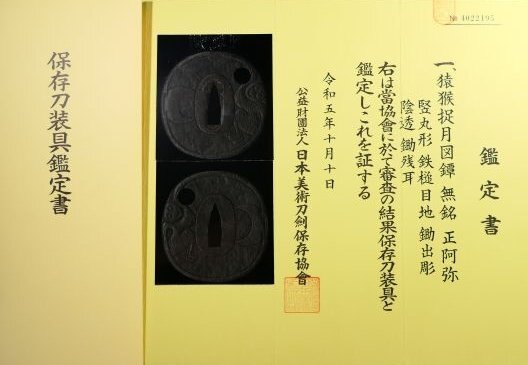 保存刀装具鑑定書
№ 4022195
鑑定書
一、猿猴捉月図鐔 無銘 正阿弥
竪丸形 鉄槌目地 鋤出彫
陰透 鋤残耳
右は當協會に於て審査の結果保存刀装具と
鑑定しこれを証する
令和五年十月十日
公益財團法人 日本美術刀劍保存協會